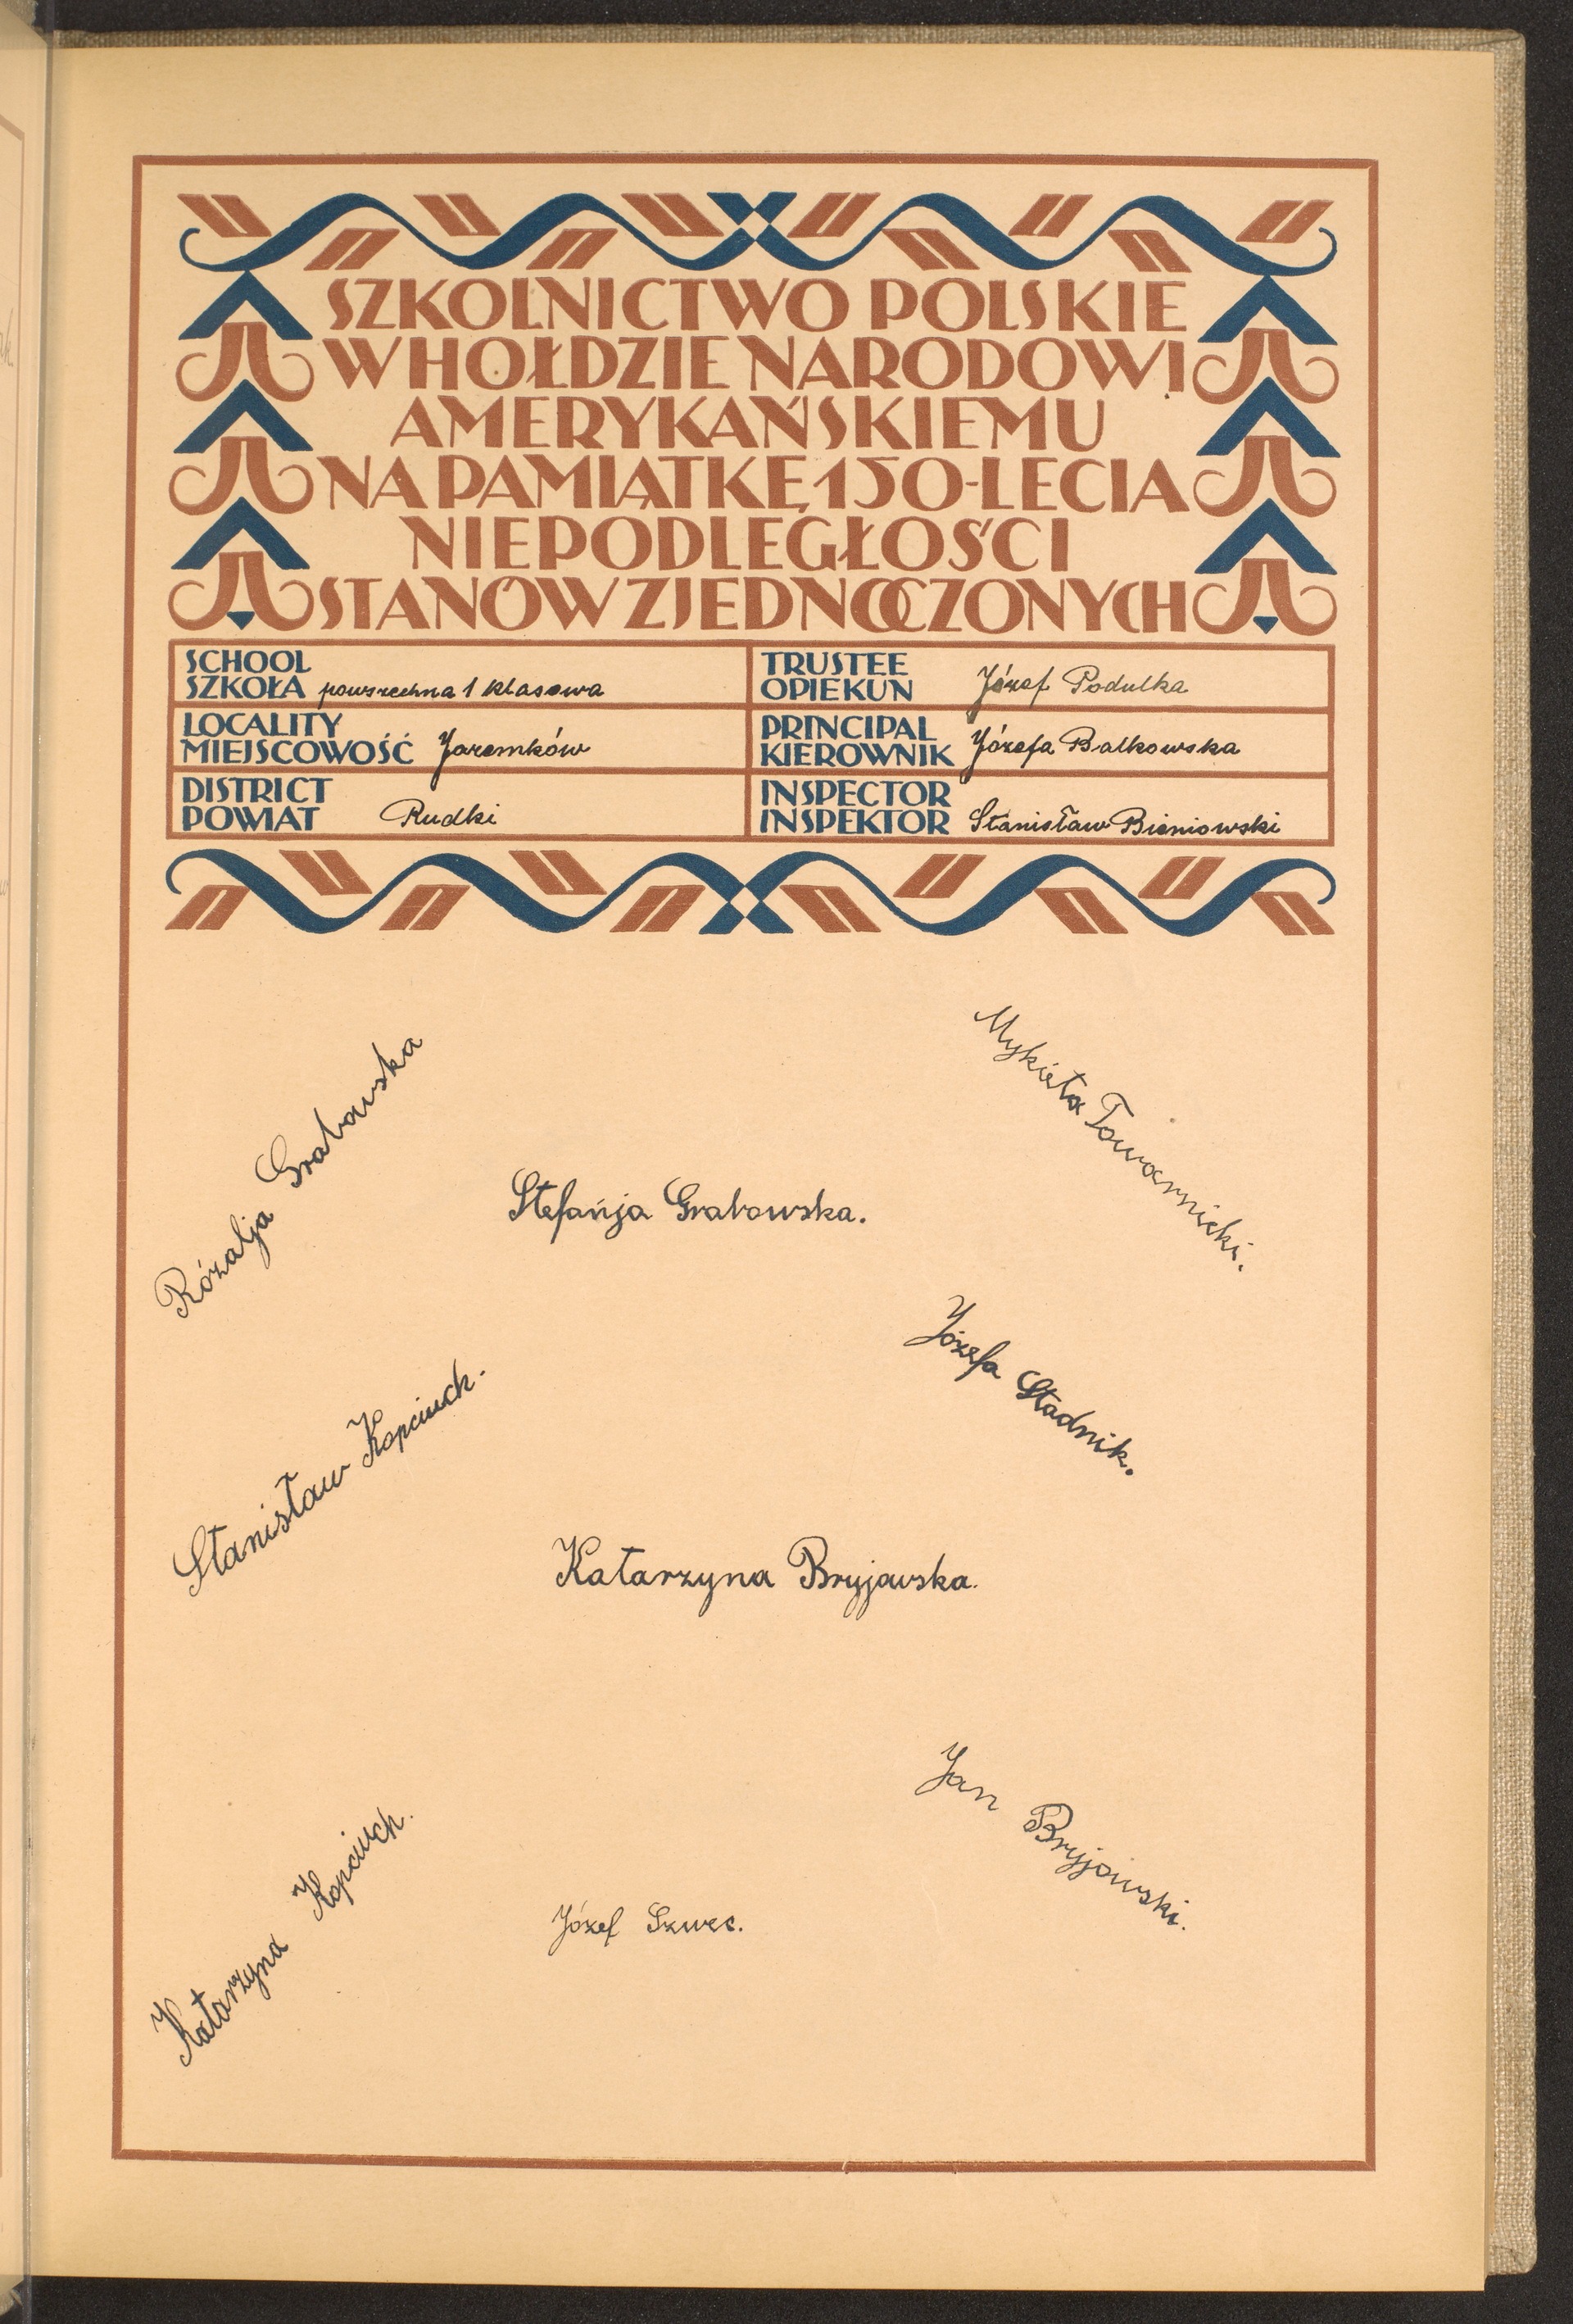 SZKOLNICTWO POLSKIE
W HOŁDZIE NARODOWI
AMERYKAŃSKIEMU
NA PAMIĄTKĘ 150-LECIA
NIEPODLEGŁOŚCI
STANÓW ZJEDNOCZONYCH
SCHOOL
SZKOŁA powszechna 1 klasowa
LOCALITY
MIEJSCOWOŚĆ Jaremków
DISTRICT
POWIAT Rudki
TRUSTEE
OPIEKUN Józef Podulka
PRINCIPAL
KIEROWNIK Józefa Balkowska
INSPECTOR
INSPEKTOR Stanisław Bieniowski
Rózalja Grabowska
Mykieta Towarnicki.
Stefanja Grabowska.
Józefa Stadnik.
Stanisław Kopciuch.
Katarzyna Bryjowska.
Jan Bryjowski.
Katarzyna Kopciuch.
Józef Szwec.